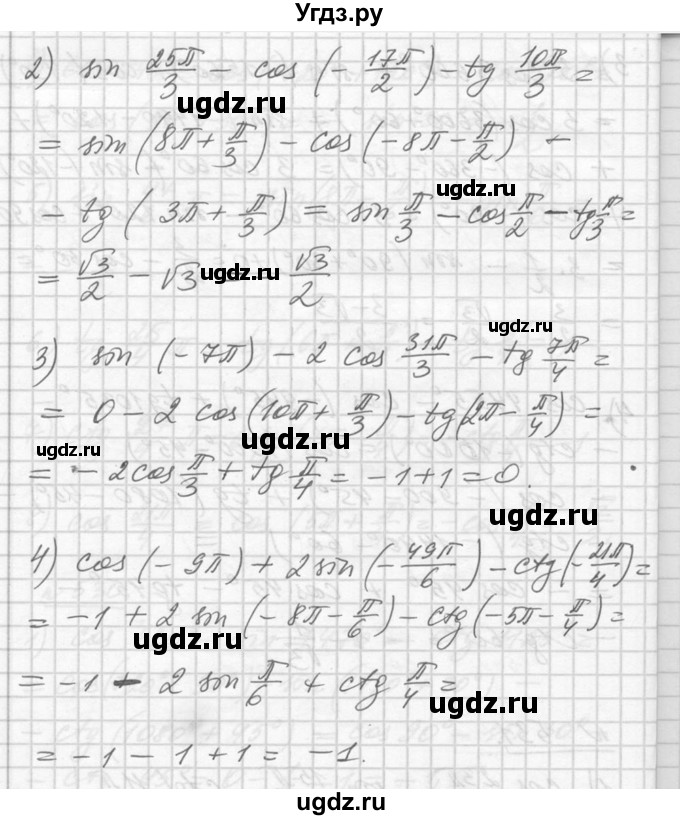 Угдз.ру
2) sin 25π/3 - cos (- 17π/2) - tg 10π/3 =
ugdz.ru
= sin (8π + π/3) - cos (-8π - π/2) -
ugdz.ru
- tg (3π + π/3) = sin π/3 - cos π/2 - tg π/3 =
= √3/2 - √3 = - √3/2
ugdz.ru
ugdz.ru
3) sin (-7π) - 2 cos 31π/3 - tg 7π/4 =
= 0 - 2 cos (10π + π/3) - tg (2π - π/4) =
ugdz.ru
ugdz.ru
= - 2 cos π/3 + tg π/4 = -1 + 1 = 0.
ugdz.ru
4) cos (-9π) + 2 sin (- 49π/6) - ctg (- 21π/4) =
= -1 + 2 sin (-8π - π/6) - ctg (-5π - π/4) =
ugdz.ru
= -1 - 2 sin π/6 + ctg π/4 =
ugdz.ru
= -1 - 1 + 1 = -1.
ugdz.ru